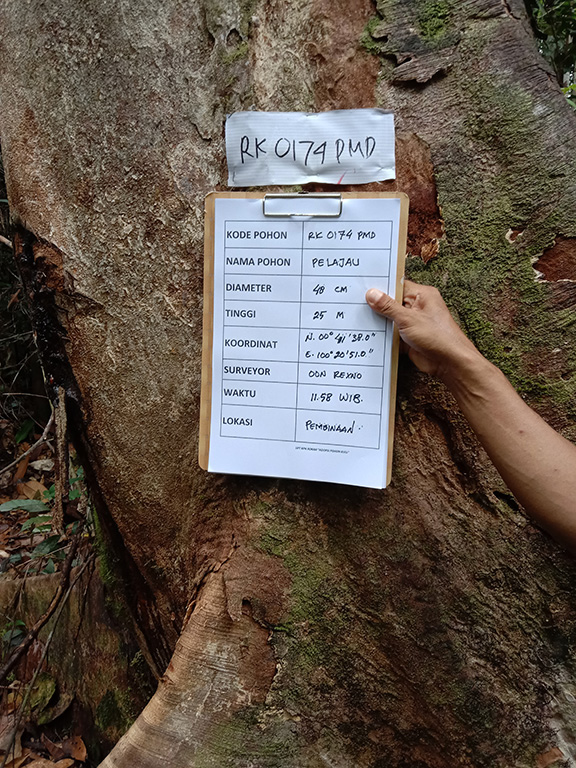 RK 0174 PMD
KODE POHON RK 0174 PMD
NAMA POHON PELAJAU
DIAMETER 48 CM
TINGGI 25 M
KOORDINAT N. 00° 41' 38.0"
E. 100° 20' 51.0"
SURVEYOR DON REXNO
WAKTU 11.58 WIB.
LOKASI PEMBINAAN.